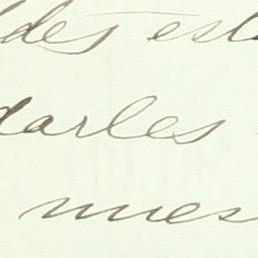 ldes est
darles
nues